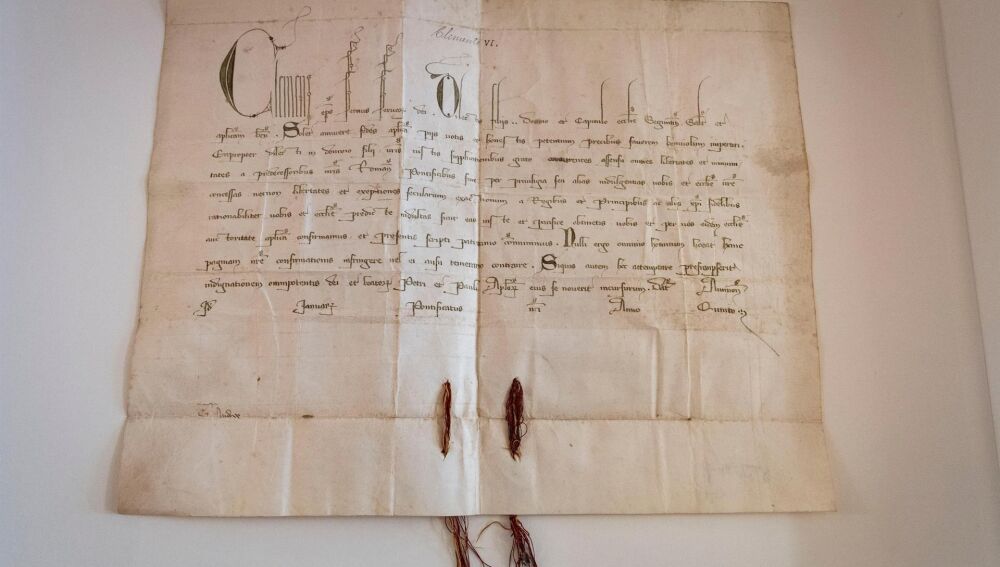 Clemente VI.
Clemens ep̄s servus servoꝝ dei. Dilectis filiis .. Decano et Capitulo ecclie Salt et
aplicam ben. Solet annuere sedes aplica piis votis et honestis petentium precibus favorem benivolum impertiri.
Eapropter dilecti in domino filii vris iustis supplicationibus grato concurrentes assensu omnes libertates et immuni
tates a predecessoribus nris Roman Pontificibus sive per privilegia seu alias indulgentias vobis et ecclie vre
concessas necnon libertates et exemptiones secularium exactionum a Regibus et Principibus ac aliis xpi fidelibus
rationabiliter vobis et ecclie predicte indultas sicut eas iuste et pacifice obtinetis vobis et per vos eidem ecclie
auctoritate aplica confirmamus et presentis scripti patrocinio communimus. Nulli ergo omnino hominum liceat hanc
paginam nre confirmationis infringere vel ei ausu temerario contraire. Siquis autem hoc attemptare presumpserit
indignationem omnipotentis dei et beatoꝝ Petri et Pauli Aploꝝ eius se noverit incursurum. Dat Avinion
Januaꝝ Pontificatus nri Anno Quinto